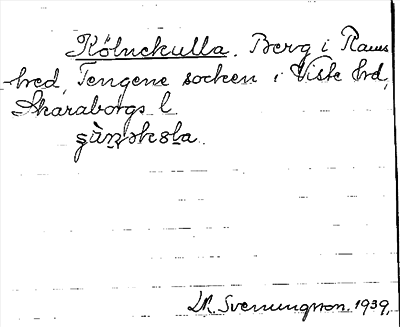 Kölnekulla. Berg i Rams
bred, Tengene socken i Viste hrd,
Skaraborgs l
D.A. Svenungsson. 1939.